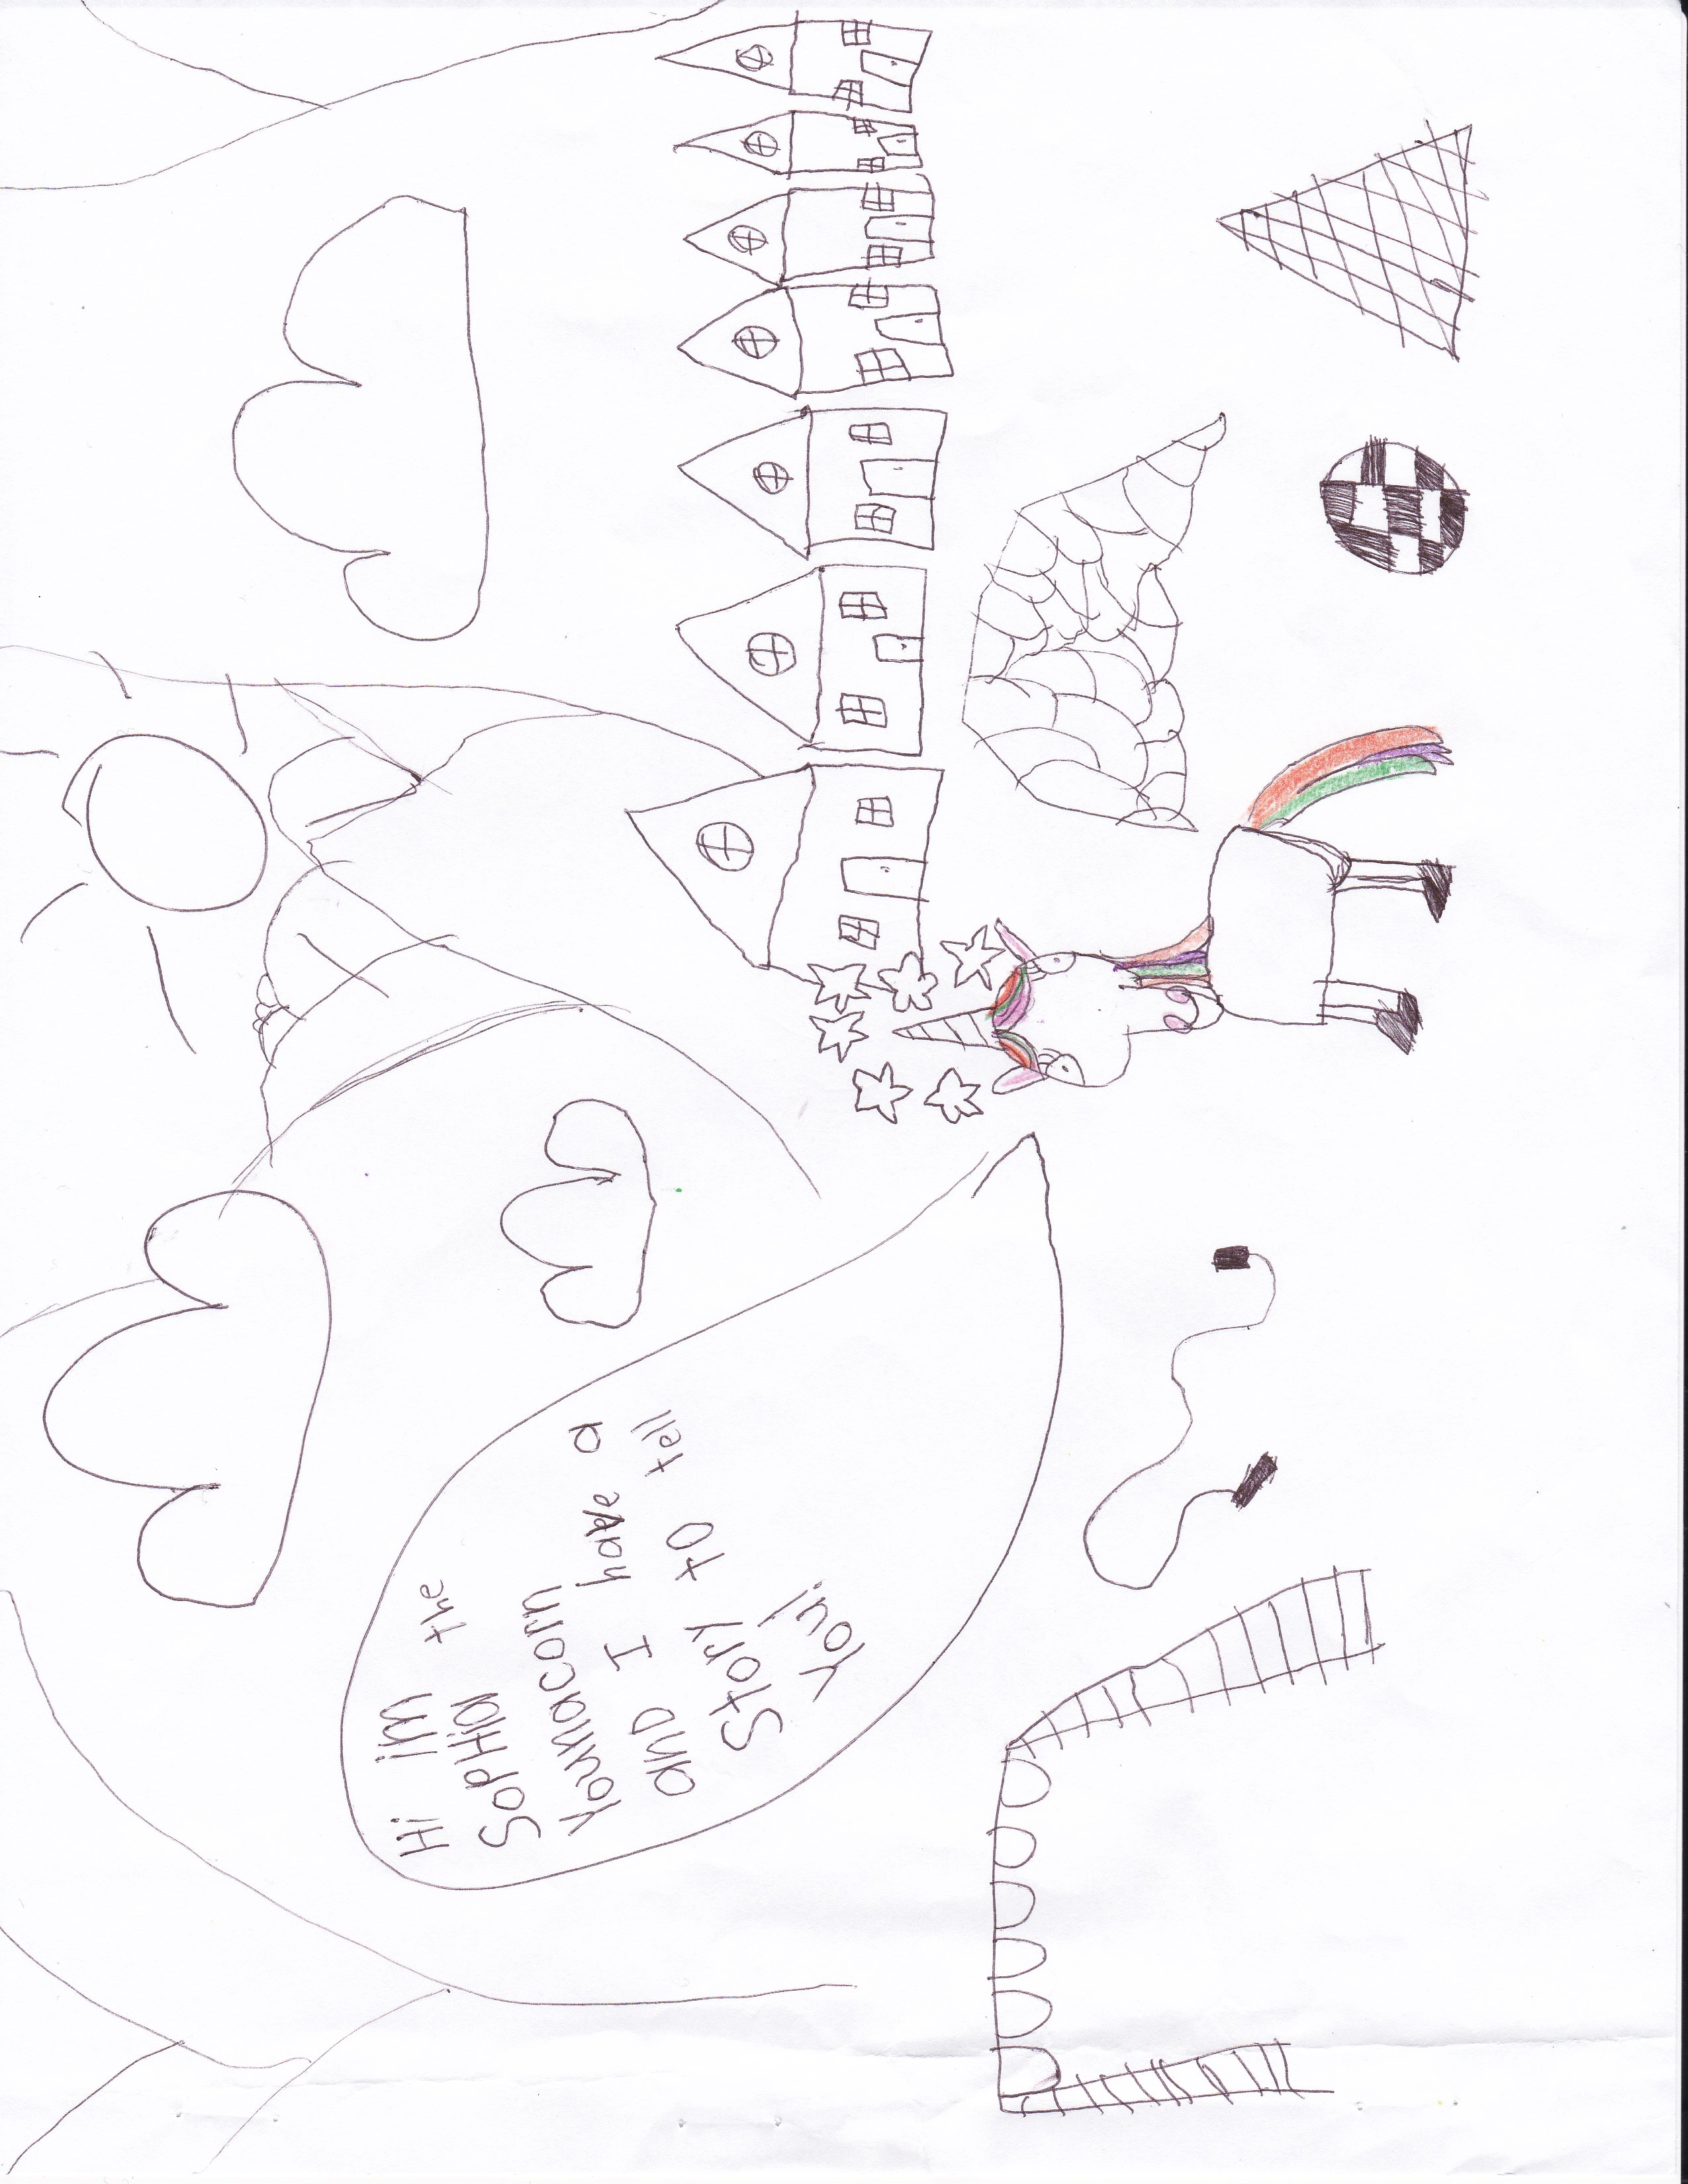 Hi im
SopHia the
Younacorn
anD I have a
Story to tell
You!